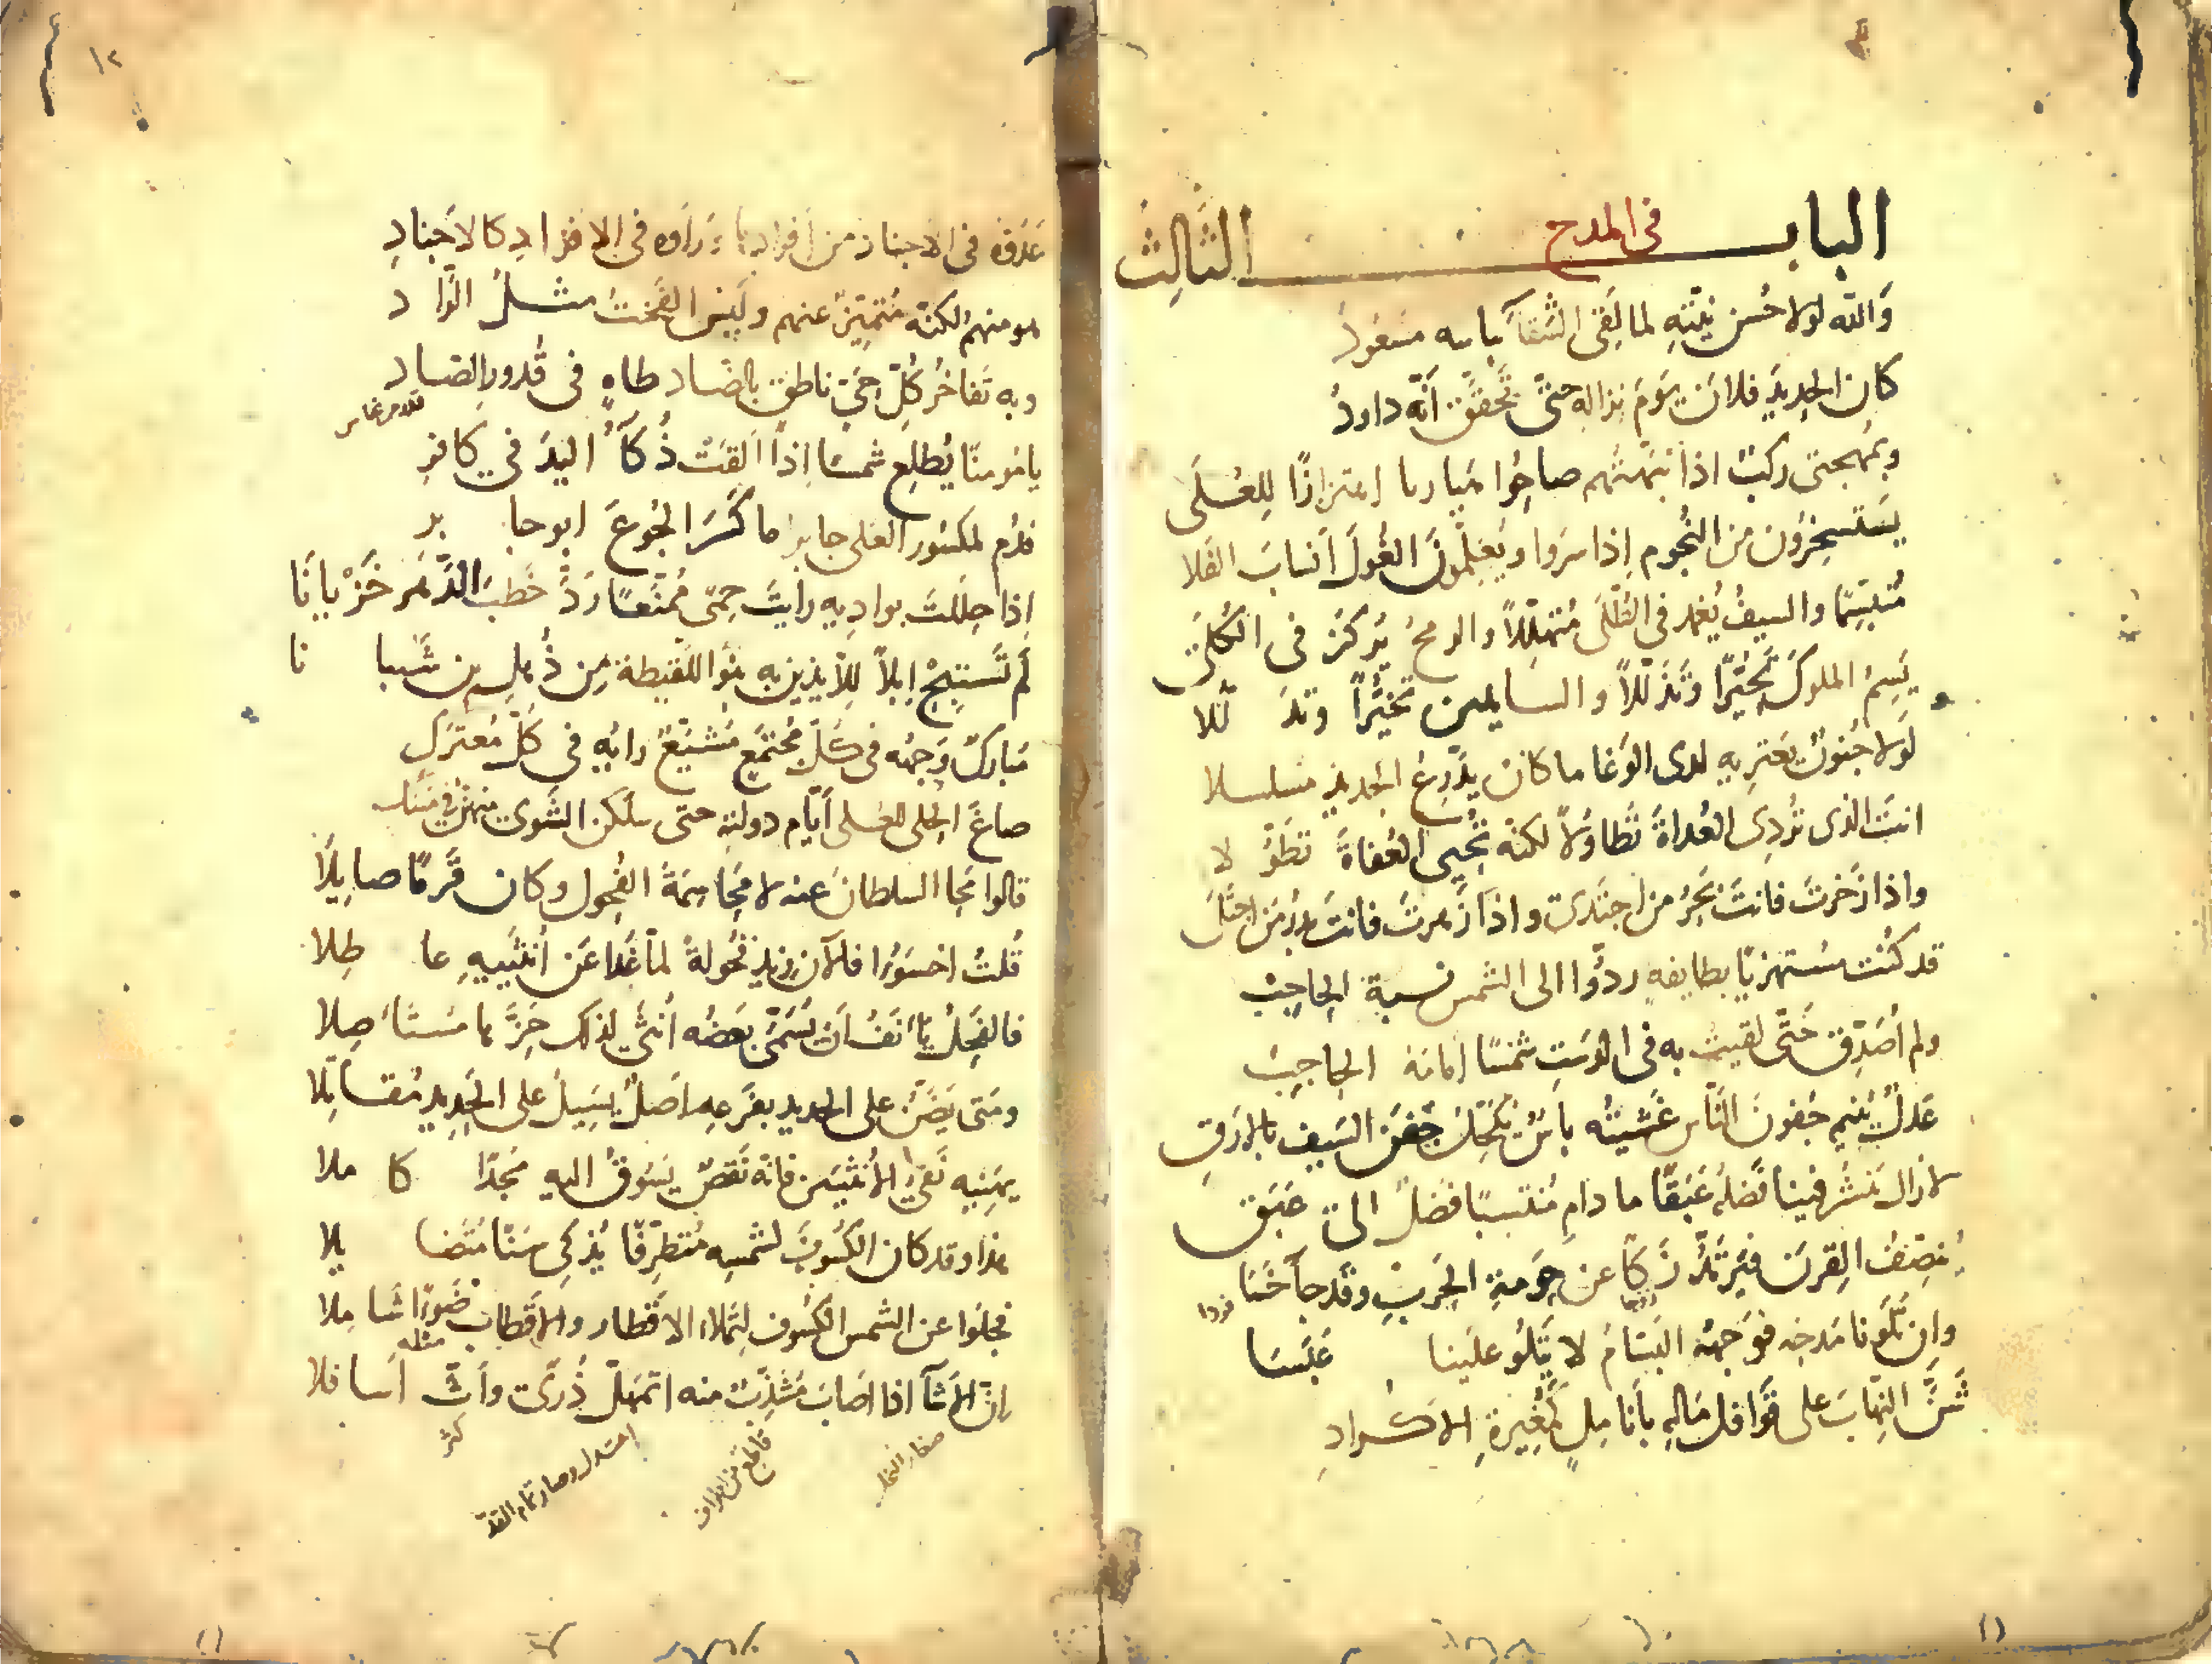 الباب في المدح الثالث
والله لولا حُسن نيّته لما لقي الشقآ بباسه مسعودُ
كان الحديدَ فلان يومَ نزاله حتّى تحقّق انّه داودُ
وبمهجتي ركبٌ اذا نبّهتهم صاحوا مبادرا اهتزازًا للعُلَى
يستسخرون من النجوم اذا سروا ويعلّمون الغول انياب الفلا
متبسّمًا والسيفُ يُغمد في الطُّلَى متهلّلاً والرمحُ يُركز في الكُلَى
يَسِمُ الملوكَ تجبّرًا وتذلّلاً والسايلين تخيّرًا وتذ لّلا
لولا جنونٌ يعتريه لدى الوغا ما كان يدّرع الحديد مسلسلا
انتَ الذي تُردِي العُداةَ تطاولاً لكنه تُحيي العُفاةَ تطوّ لا
واذا زخرتَ فانتَ بحرُ من اجتدى واذا زهرتَ فانتَ بدرُ من اجتلى
قد كنتُ مستهزيًا بطايفةٍ ردّوا الى الشمس نسبة الحاجبْ
ولم اُصدّق حتّى لقيتُ به في الدستِ شمسًا امامَهُ الحاجبْ
عدلٌ يُنيم جفونَ النّاس غشيته باسٌ يكحّل جفنَ السيف بالارقِ
لا زال ينشر فينا فضلهُ عبقًا ما دام منتسبًا فضلٌ الى عبقِ
يُنصِفُ القِرنَ فيرتدّ زكًا عن حومةِ الحربِ وقد جآ خَسَا
زوجا فردا
وان تلونا مدحه فوجهه البسّامُ لا يتلو علينا عبَسَا
شَنَّ النِّهابَ على قوافل مالهِ بأناملٍ كمُغيرةِ الاكرادِ
١٢
عَدَوْه في الاجناد من افرادها ورأوه في الافرادِ كالاجنادِ
هو منهم لكنّه متميّز عنهم وليس الفَخْتُ مثل الوّا د
وبه تفاخرُ كلّ حيّ ناطقٍ بالضاد طاهٍ في قدور الصاد
يا مومنًا يُطلِع شمسًا اذا القت ذُكآءُ اليدَ في كافرِ
فدُم لمكسور العلى جابرا ما كسَرَ الجوعَ ابو جا بر
اذا حللتَ بواديه رايتَ حمًى ممنّعًا ردّ خطبَ الدّهر خَزْيانَا
لم تَستبِحْ اِبلاً للآيذين به بنو اللّقيطة من ذُهلِ بن شيبا نا
مباركٌ وجهه في كلّ مجتمعٍ مشيّعٌ رايه في كلّ معتركِ
صاغَ الحلى للعُلى أيّام دولته حتى سلكن الشوى منهنّ في مَسَكِ
قالوا محا السلطانُ عنه لا محا سِمَةَ الفحول وكان قَرمًا صايلًا
قُلتُ اخسَؤُا فالآن زيد فُحولةً لمّا غدا عن اُنثييه عا طِلا
فالفحلُ يأنَفُ ان يُسَمَّى بعضُه اُنثى لذلك حزّها مستأصِلا
يهنيه نفيُ الاُنثيين فانّه نقصٌ يسوقُ اليه مجدًا كا ملا
هذا وقد كان الكسوفُ لشمسه متطرّفًا يُذكي سنًا متضا يلا
فجلوا عن الشمس الكسوف لتملاء الاقطار والاقطاب ضوءًا شاملا
انّ الاشآ اذا اصابَ مشذّبٌ منه اتمهلّ ذُرًى واثّ اسافلا
صغار النخل
اعتدل وصار تام القدّ
كثر